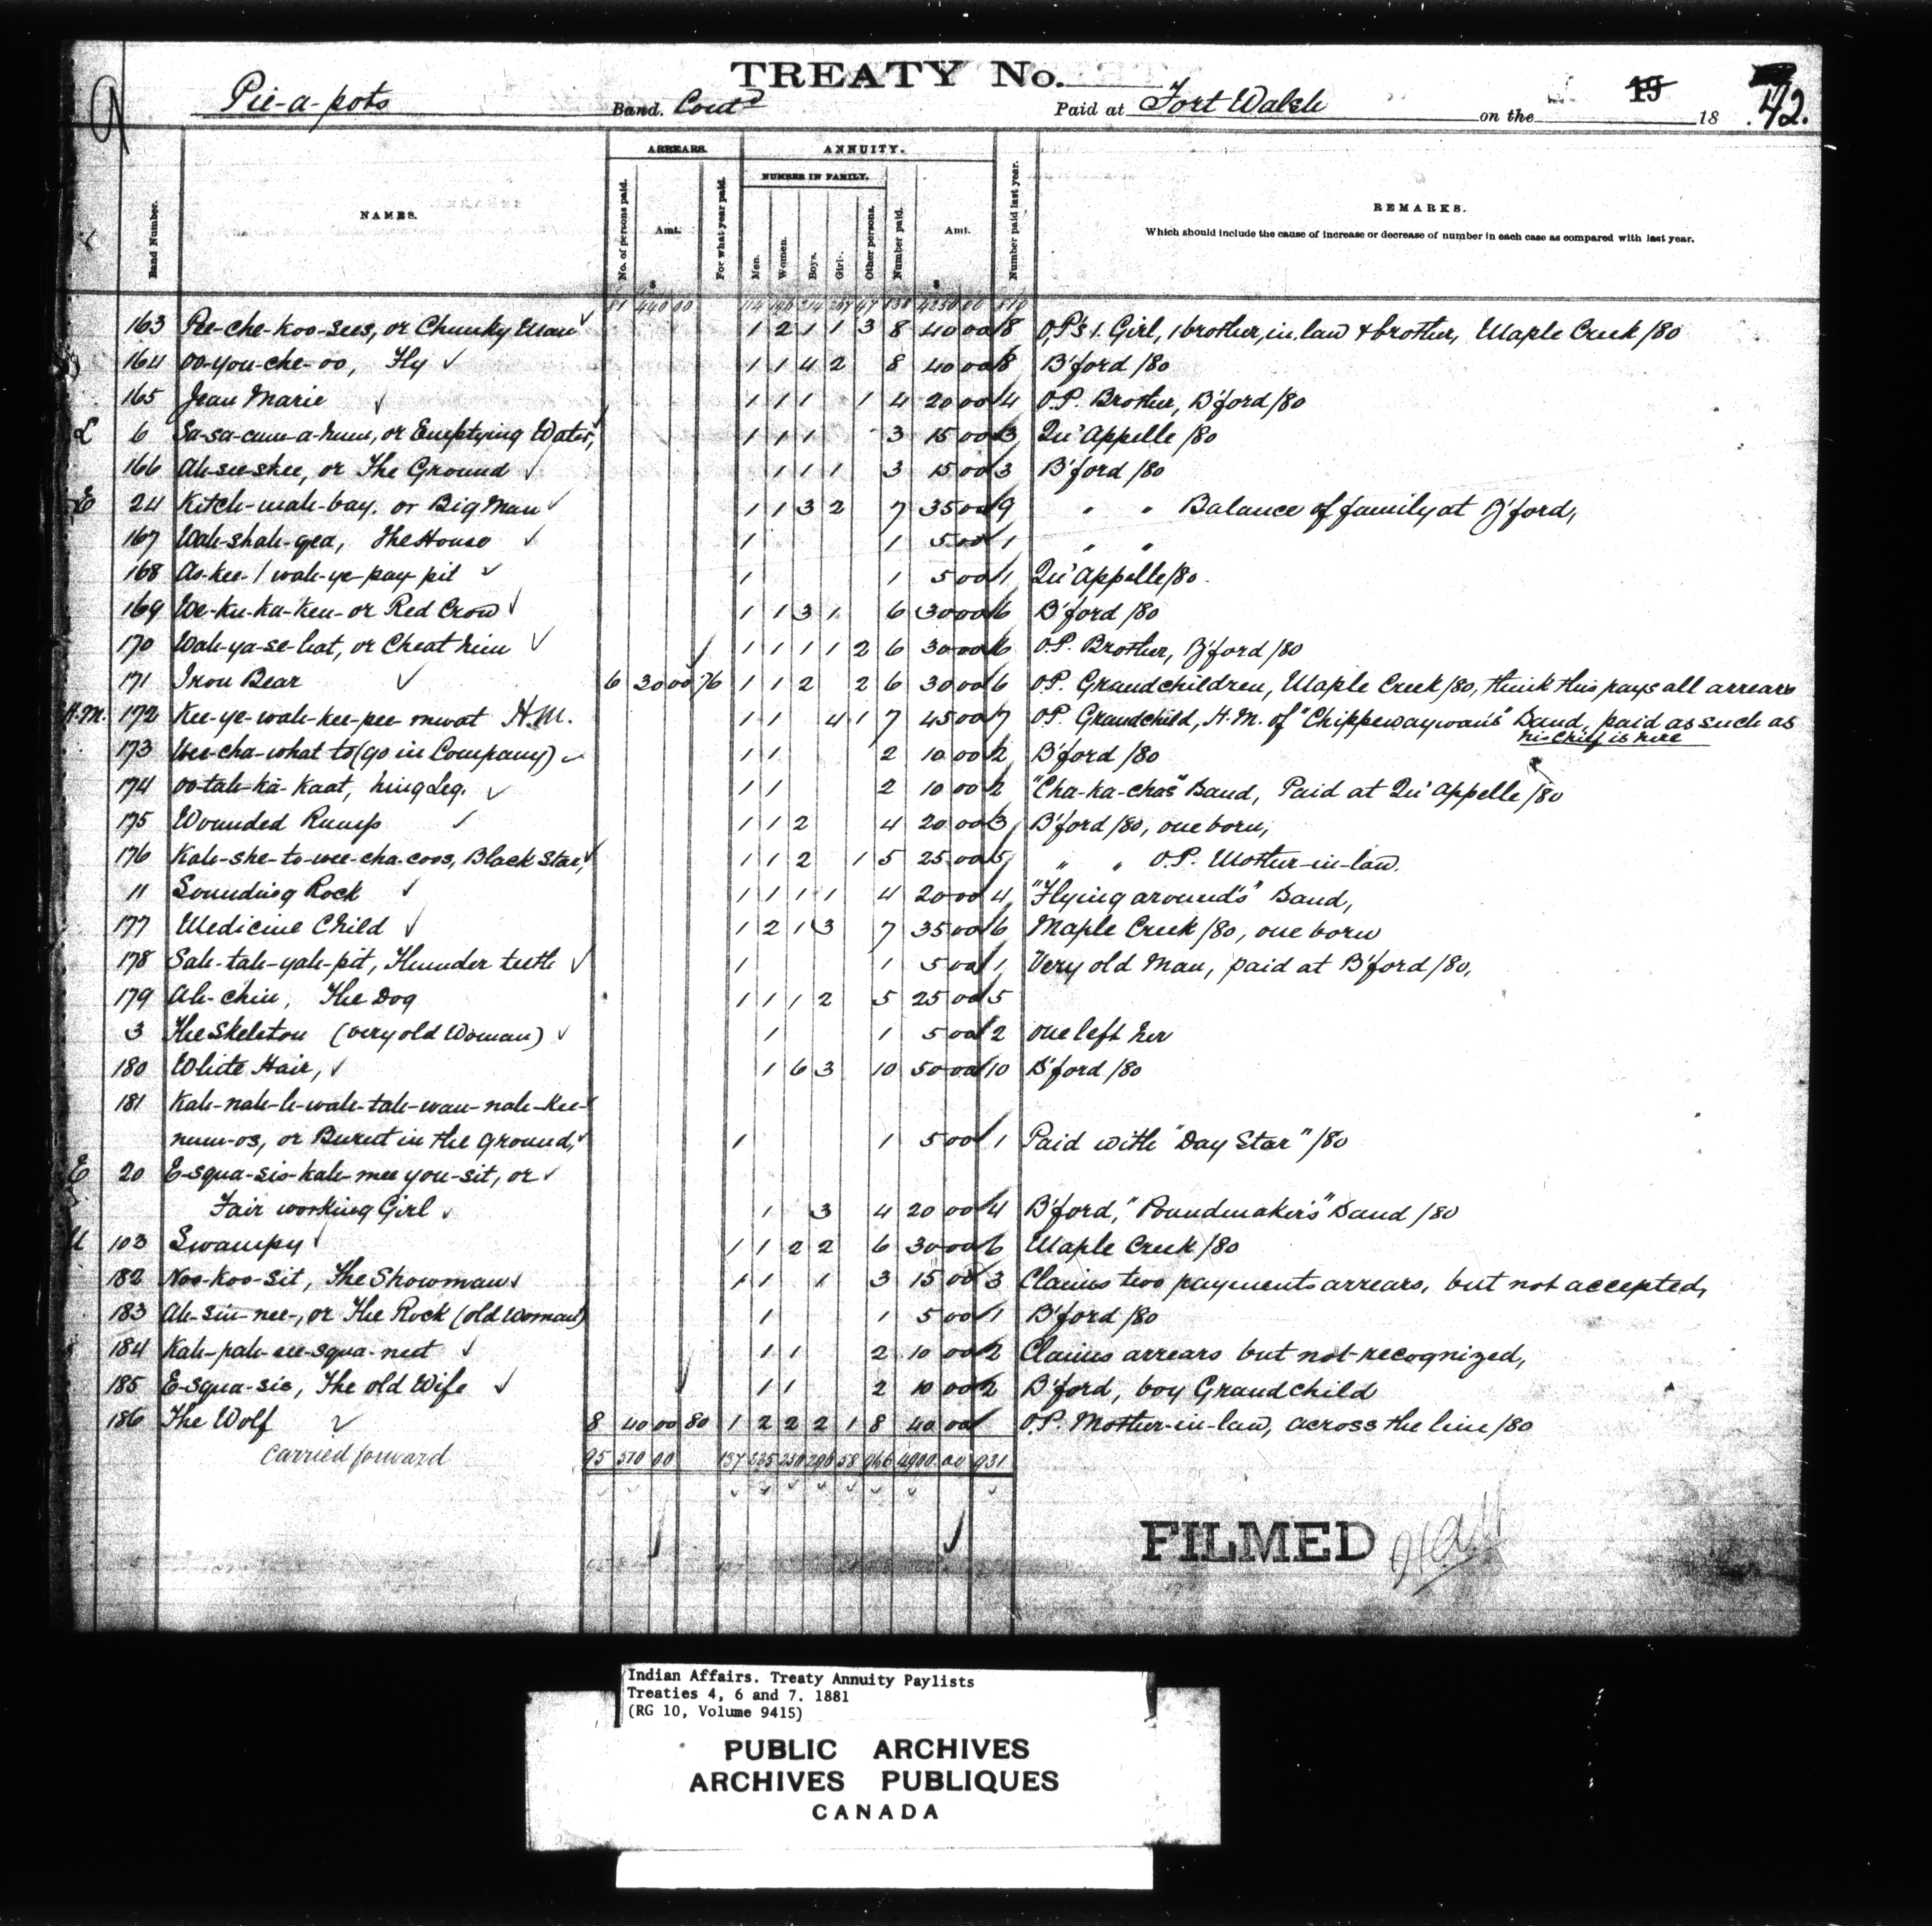 TREATY No.
Pie-a-pots Band. Contd Paid at Fort Walsh on the 18
19 42.
ARREARS. ANNUITY.
NUMBER IN FAMILY.
Band Number. NAMES. No. of persons paid. Amt. For what year paid. Men. Women. Boys. Girls. Other persons. Number paid. Amt. Number paid last year. REMARKS.
Which should include the cause of increase or decrease of number in each case as compared with last year.
$ $
81 440 00 4250 00
163 Pee-che-koo-sees, or Chunky Man 1 2 1 1 3 8 40 00 8 O.P's 1 Girl, 1 brother, in, law & brother, Maple Creek /80
164 oo-you-che-oo, Fly 1 1 4 2 8 40 00 8 B'ford /80
165 Jean Marie 1 1 1 1 4 20 00 4 O.P. Brother, B'ford /80
L 6 Sa-sa-cum-a-hum, or Emptying Water, 1 1 1 3 15 00 3 Qu'Appelle /80
166 Ah-see-skee, or The Ground 1 1 1 3 15 00 3 B'ford /80
E 24 Kitch-mah-bay, or Big Man 1 1 3 2 7 35 00 9 " " Balance of family at B'ford,
167 Wah-shah-gea, The House 1 1 5 00 1 " "
168 As-kee-/ wah-ye-pay-pit 1 1 5 00 1 Qu'Appelle /80.
169 We-ku-ka-keu- or Red Crow 1 1 3 1 6 30 00 6 B'ford /80
170 Wah-ya-se-hat, or Cheat him 1 1 1 1 2 6 30 00 6 O.P. Brother, B'ford /80
171 Iron Bear 6 30 00 76 1 1 2 2 6 30 00 6 O.P. Grandchildren, Maple Creek /80, think this pays all arrears
H.M. 172 Kee-ye-wah-kee-pee-mwat H.M. 1 1 4 1 7 45 00 7 O.P. Grandchild, H.M. of "Chippewaywan's" Band, paid as such as
his chief is here
173 Wee-cha-what to (go in Company) 1 1 2 10 00 2 B'ford /80
174 oo-tah-kà-kaat, hing Leg. 1 1 2 10 00 2 "Cha-ka-chas" Band, Paid at Qu'Appelle /80
175 Wounded Rump 1 1 2 4 20 00 3 B'ford /80, one born,
176 Kah-she-to-wee-cha-coos, Black Star, 1 1 2 1 5 25 00 5 " " O.P. Mother-in-law.
11 Sounding Rock 1 1 1 1 4 20 00 4 "Flying around's" Band,
177 Medicine Child 1 2 1 3 7 35 00 6 Maple Creek /80, one born
178 Sah-tah-yah-pit, Thunder teeth 1 1 5 00 1 Very old Man, paid at B'ford /80,
179 Ah-chim, The Dog 1 1 1 2 5 25 00 5
3 The Skeleton (very old Woman) 1 1 5 00 2 one left her
180 White Hair, 1 6 3 10 50 00 10 B'ford /80
181 Kah-nah-le-wah-tah-wau-nah-kee-
num-os, or Burnt in the ground, 1 1 5 00 1 Paid with "Day Star" /80
E 20 E-squa-sis-kah-mee you-sit, or
Fair working Girl 1 3 4 20 00 4 B'ford, "Poundmaker's" Band /80
103 Swampy 1 1 2 2 6 30 00 6 Maple Creek /80
182 Noo-koo-sit, The Showman 1 1 1 3 15 00 3 Claims two payments arrears, but not accepted,
183 Ah-sin-nee-, or The Rock (old Woman) 1 1 5 00 1 B'ford /80
184 Kah-pah-ere-squa-neet 1 1 2 10 00 2 Claims arrears but not recognized,
185 E-squa-sis, The old Wife 1 1 2 10 00 2 B'ford, boy Grandchild
186 The Wolf 8 40 00 80 1 2 2 2 1 8 40 00 O.P. Mother-in-law, across the line /80
Carried forward 95 510 00 137 58 966 4900 00 931
FILMED
Indian Affairs. Treaty Annuity Paylists
Treaties 4, 6 and 7. 1881
(RG 10, Volume 9415)
PUBLIC ARCHIVES
ARCHIVES PUBLIQUES
CANADA